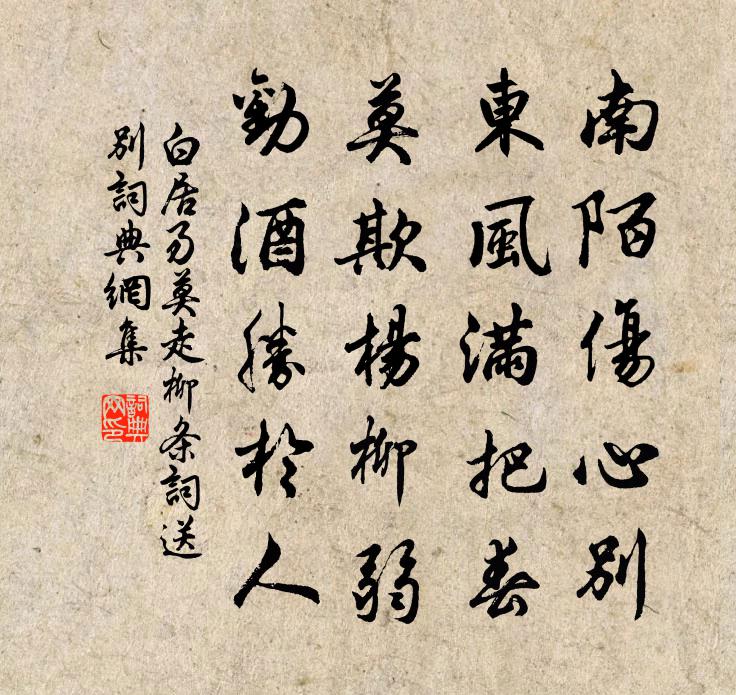 南陌傷心別
東風滿把春
莫欺楊柳弱
勸酒勝於人
白居易莫走柳条詞送
別詞典網集
詞典
网印